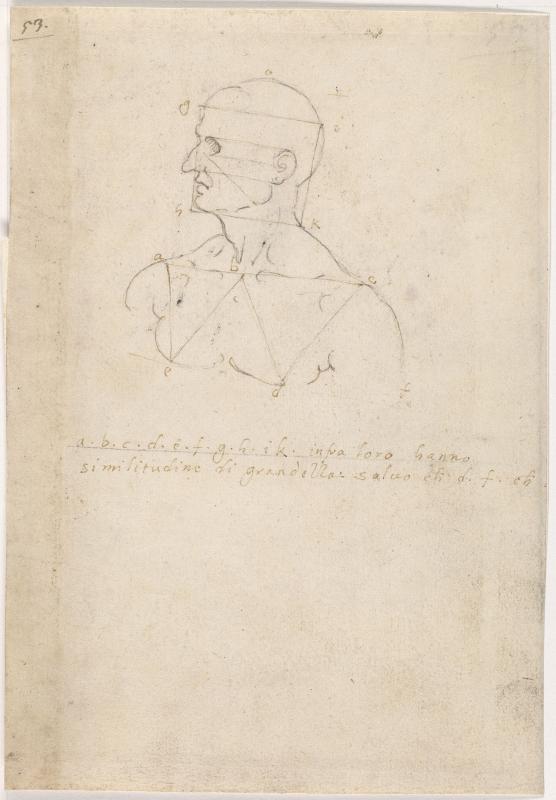 53.
a
g
i
h
k
a
b
c
e
d
f
a. b. c. d. e. f. g. h. i k. infra loro hanno
similitudine di grandezza. salvo ch d. f. ch